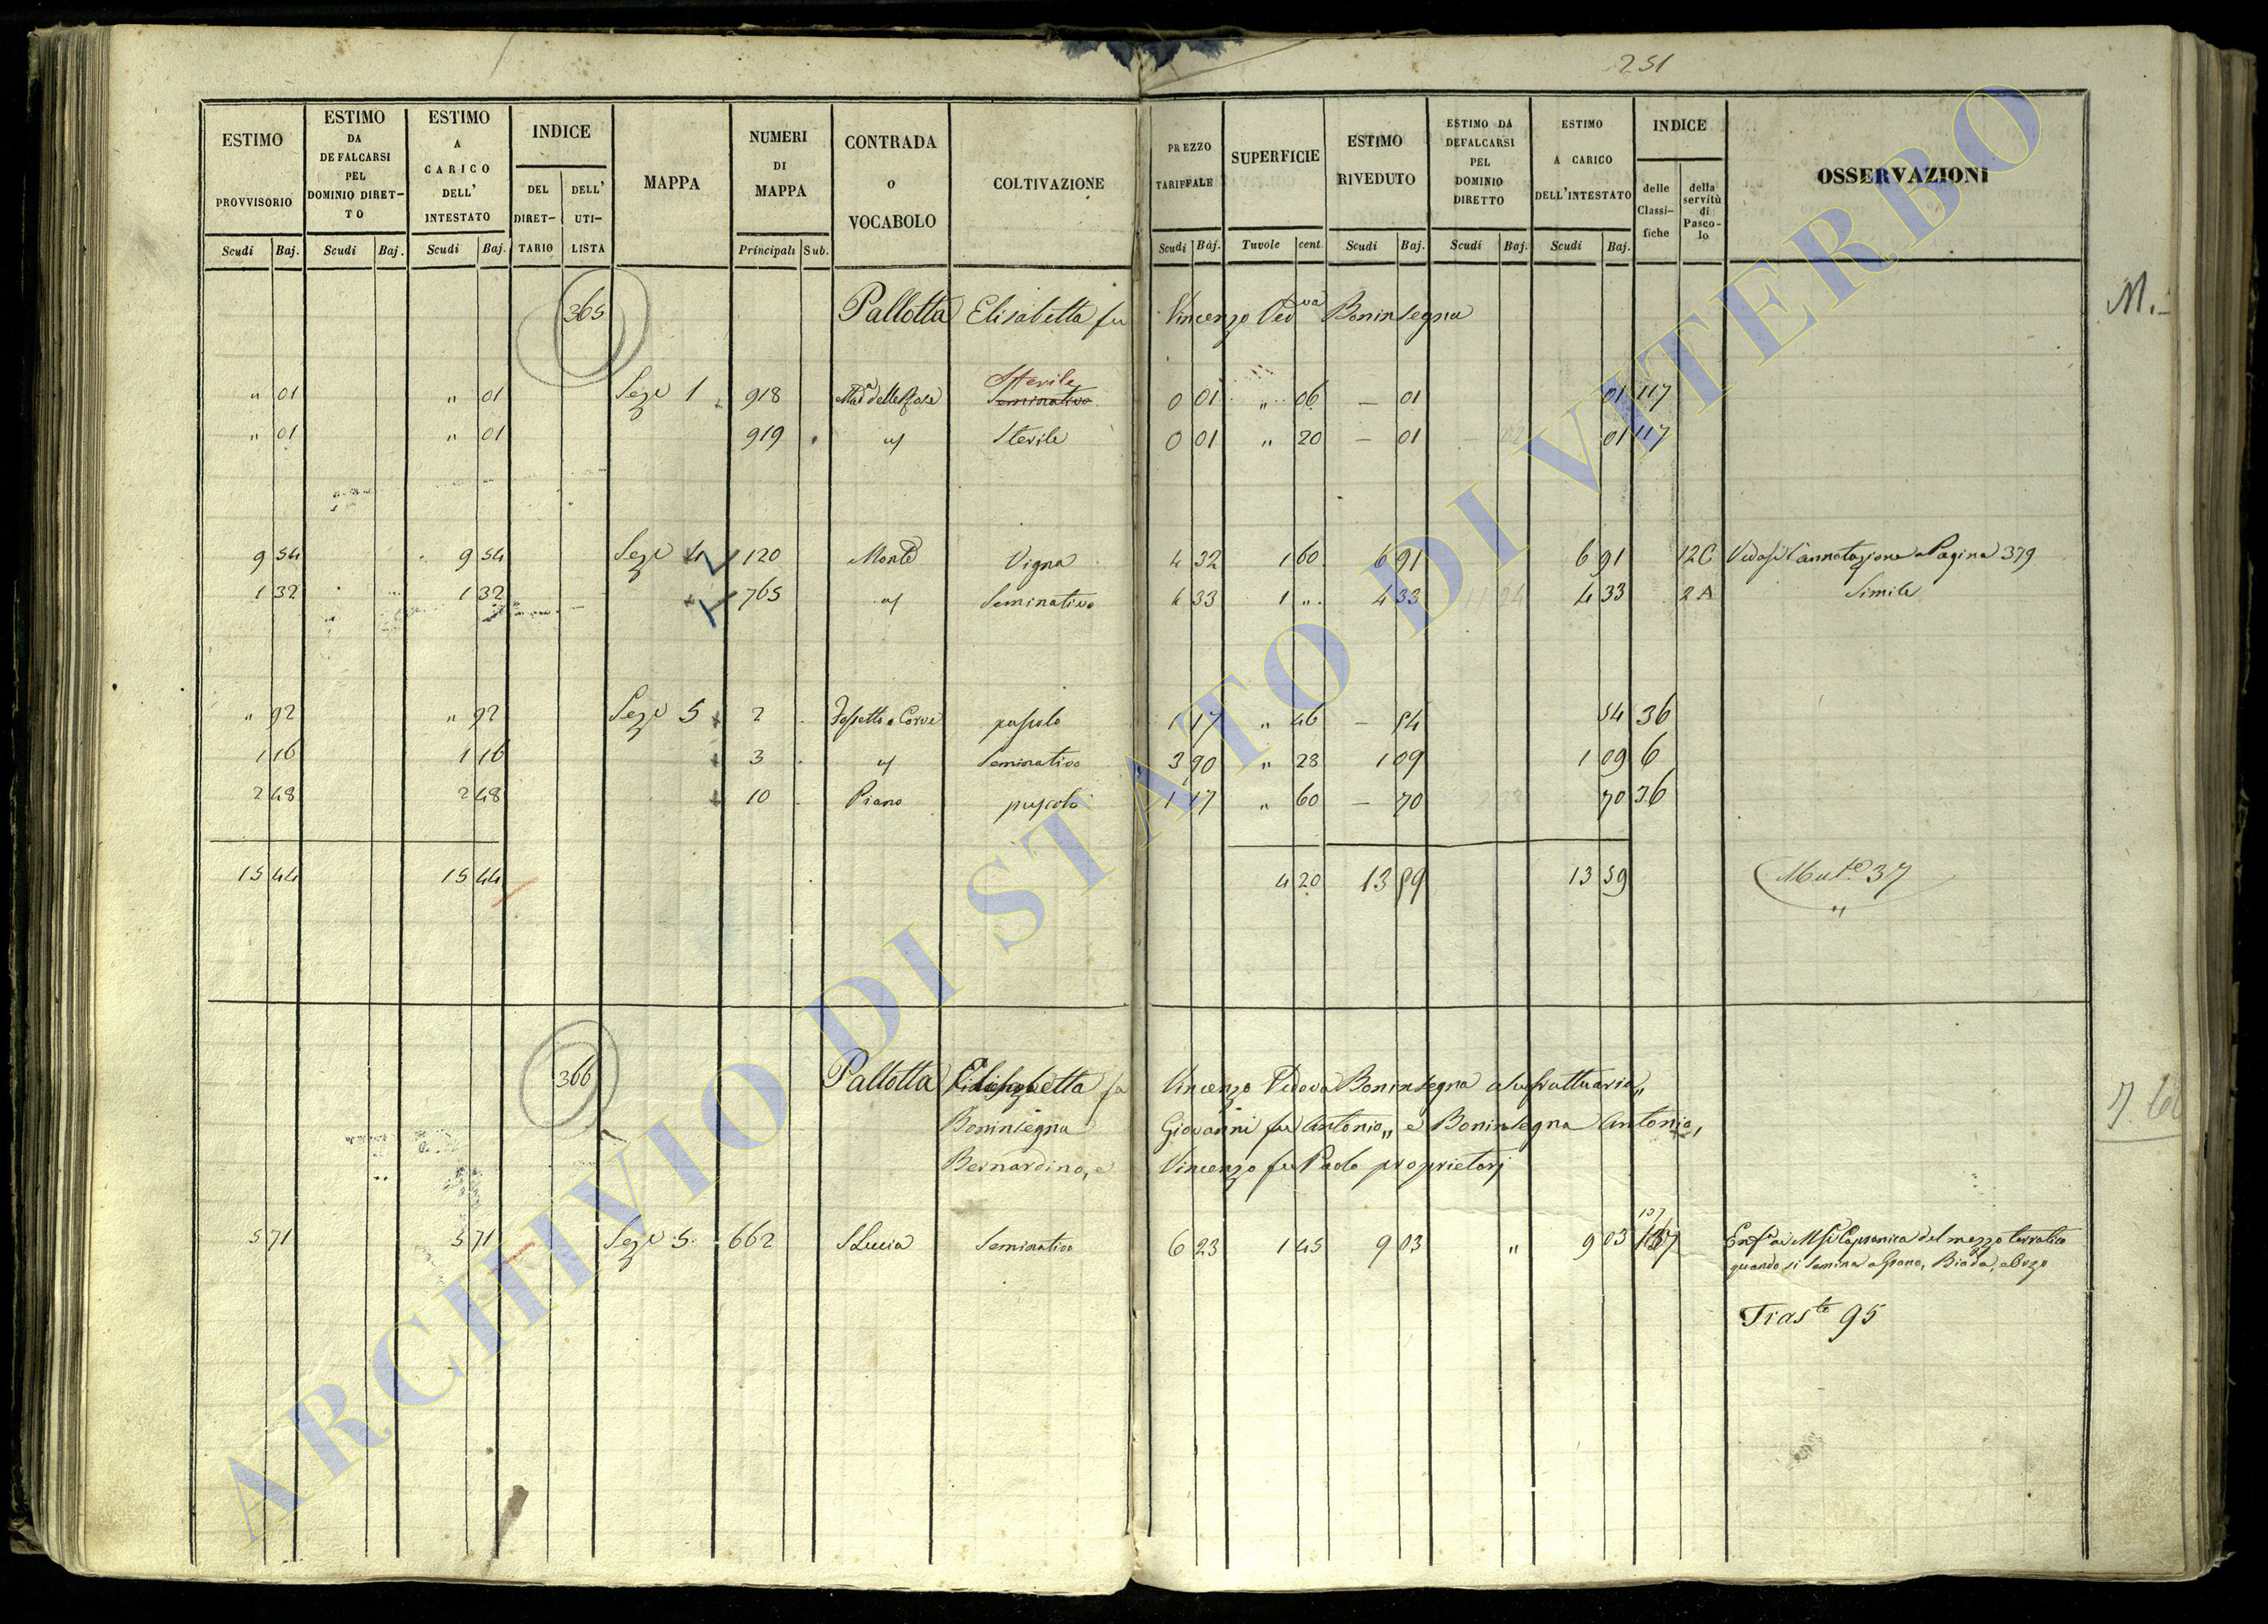 251
ESTIMO PROVVISORIO Scudi Baj.
ESTIMO DA DEFALCARSI PEL DOMINIO DIRET-TO Scudi Baj.
ESTIMO A CARICO DELL' INTESTATO Scudi Baj.
INDICE DEL DIRET-TARIO DELL' UTI-LISTA
MAPPA
NUMERI DI MAPPA Principali Sub.
CONTRADA O VOCABOLO
COLTIVAZIONE
PREZZO TARIFFALE Scudi Baj.
SUPERFICIE Tavole cent.
ESTIMO RIVEDUTO Scudi Baj.
ESTIMO DA DEFALCARSI PEL DOMINIO DIRETTO Scudi Baj.
ESTIMO A CARICO DELL'INTESTATO Scudi Baj.
INDICE delle Classi-fiche della servitù di Pasco-lo
OSSERVAZIONI
365 Pallotta Elisabetta fu Vincenzo Ved.va Boninsegna
M.
" 01 " 01 Sez.e 1 918 Mad.a delle Rose Sterile Seminativo 0 01 " 06 — 01 01 117
" 01 " 01 919 " Sterile 0 01 " 20 — 01 01 117
9 54 9 54 Sez.e 4 120 Monte Vigna 4 32 1 60 6 91 6 91 12C Vedasi l'annotazione a Pagina 379
1 32 1 32 765 " Seminativo 4 33 1 " 4 33 4 33 2A Simile
" 92 " 92 Sez.e 5 2 Fossetto o Corvi pascolo 1 17 " 46 — 54 54 36
1 16 1 16 3 " Seminativo 3 90 " 28 1 09 1 09 6
2 48 2 48 10 Piano pascolo 1 17 " 60 — 70 70 36
15 44 15 44 4 20 13 59 13 59 Mut.e 37
366 Pallotta Elisabetta fu Vincenzo Vedova Boninsegna usufruttuaria,,
Boninsegna Giovanni fu Antonio,, e Boninsegna Antonio,
Bernardino, e Vincenzo fu Paolo proprietarj
5 71 5 71 Sez.e 5 662 S Lucia Seminativo 6 23 1 45 9 03 " 9 03 137 Capranica del mezzo terratico
quando si semina a Grano, Biada, ed Orzo
Tras.te 95
ARCHIVIO DI STATO DI VITERBO